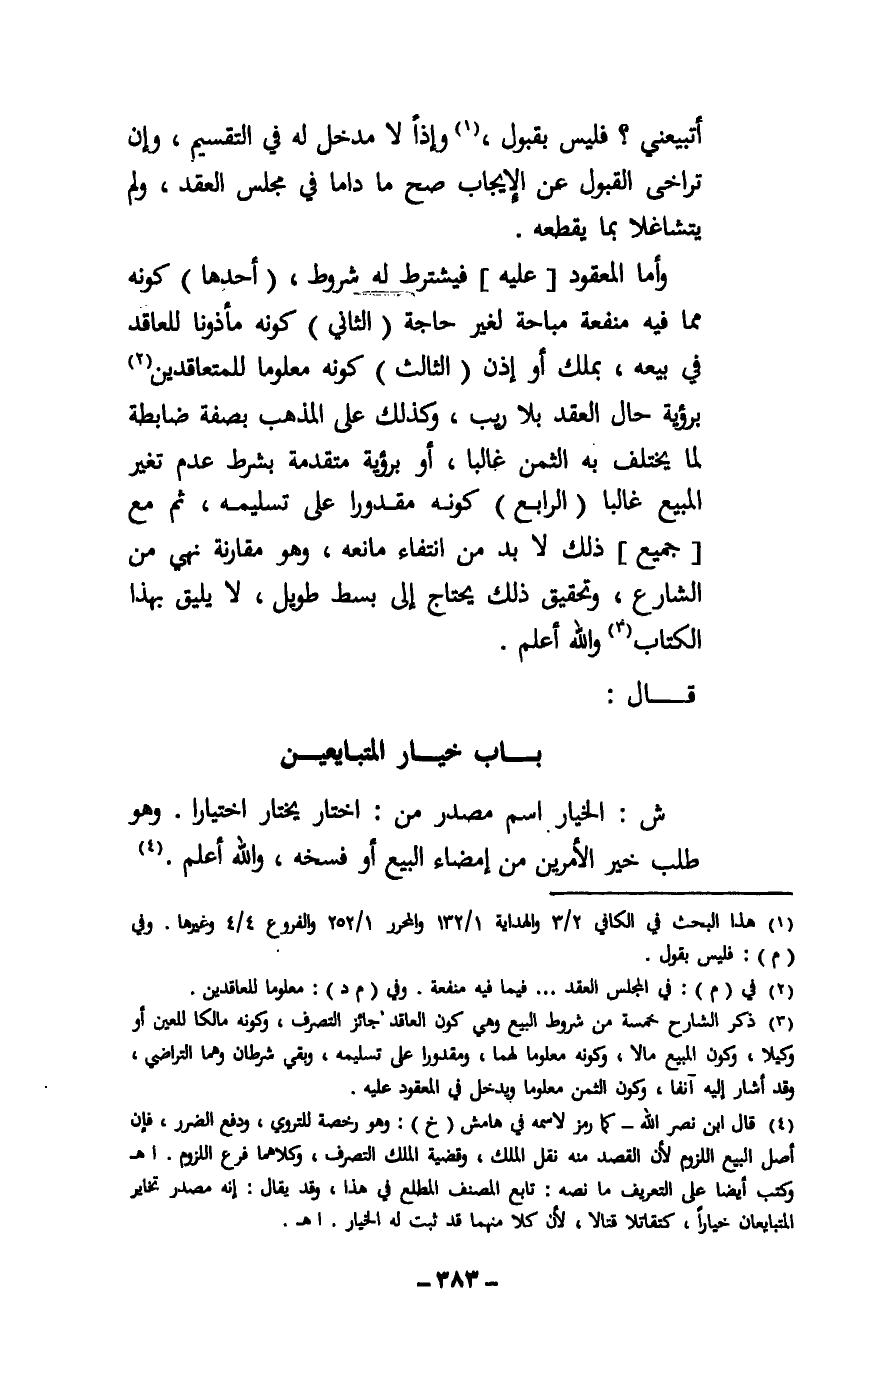 أتبيعني ؟ فليس بقبول ،(١) وإذاً لا مدخل له في التقسيم ، وإن
تراخى القبول عن الإيجاب صح ما داما في مجلس العقد ، ولم
يتشاغلا بما يقطعه .
وأما المعقود [ عليه ] فيشترط له شروط ، ( أحدها ) كونه
مما فيه منفعة مباحة لغير حاجة ( الثاني ) كونه مأذونا للعاقد
في بيعه ، بملك أو إذن ( الثالث ) كونه معلوما للمتعاقدين(٢)
برؤية حال العقد بلا ريب ، وكذلك على المذهب بصفة ضابطة
لما يختلف به الثمن غالبا ، أو برؤية متقدمة بشرط عدم تغير
المبيع غالبا ( الرابع ) كونه مقدورا على تسليمه ، ثم مع
[ جميع ] ذلك لا بد من انتفاء مانعه ، وهو مقارنة نهي من
الشارع ، وتحقيق ذلك يحتاج إلى بسط طويل ، لا يليق بهذا
الكتاب(٣) والله أعلم .
قــــال :
بـــاب خيـــار المتبايعيـــن
ش : الخيار اسم مصدر من : اختار يختار اختيارا . وهو
طلب خير الأمرين من إمضاء البيع أو فسخه ، والله أعلم .(٤)
(١) هذا البحث في الكافي ٣/٢ والهداية ١٣٢/١ والمحرر ٢٥٢/١ والفروع ٤/٤ وغيرها . وفي
( م ) : فليس بقول .
(٢) في ( م ) : في المجلس العقد ... فيما فيه منفعة . وفي ( م د ) : معلوما للعاقدين .
(٣) ذكر الشارح خمسة من شروط البيع وهي كون العاقد جائز التصرف ، وكونه مالكا للعين أو
وكيلا ، وكون المبيع مالا ، وكونه معلوما لهما ، ومقدورا على تسليمه ، وبقي شرطان وهما التراضي ،
وقد أشار إليه آنفا ، وكون الثمن معلوما ويدخل في المعقود عليه .
(٤) قال ابن نصر الله – كما رمز لاسمه في هامش ( خ ) : وهو رخصة للتروي ، ودفع الضرر ، فإن
أصل البيع اللزوم لأن القصد منه نقل الملك ، وقضية الملك التصرف ، وكلاهما فرع اللزوم . ا هـ
وكتب أيضا على التعريف ما نصه : تابع المصنف المطلع في هذا ، وقد يقال : إنه مصدر تخاير
المتبايعان خياراً ، كتقاتلا قتالا ، لأن كلا منهما قد ثبت له الخيار . ا هـ .
– ٣٨٣ –